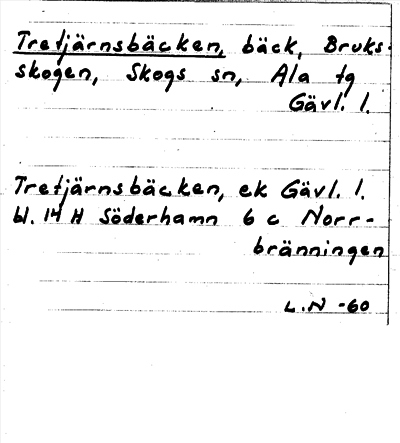 Tretjärnsbäcken, bäck, Bruks-
skogen, Skogs sn, Ala tg
Gävl. l.
Tretjärnsbäcken, ek Gävl. l.
bl. 14 H Söderhamn 6 c Norr-
bränningen
L.N -60